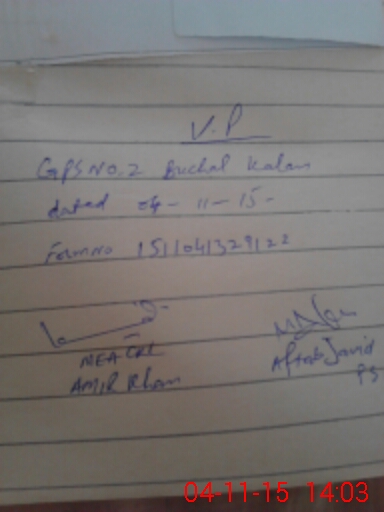 V.P
GPS NO.2 Buchal Kalan
dated 04-11-15-
Form no 1511041329122
MEA CKL
Amir Khan
Aftab Javid
PS
04-11-15 14:03